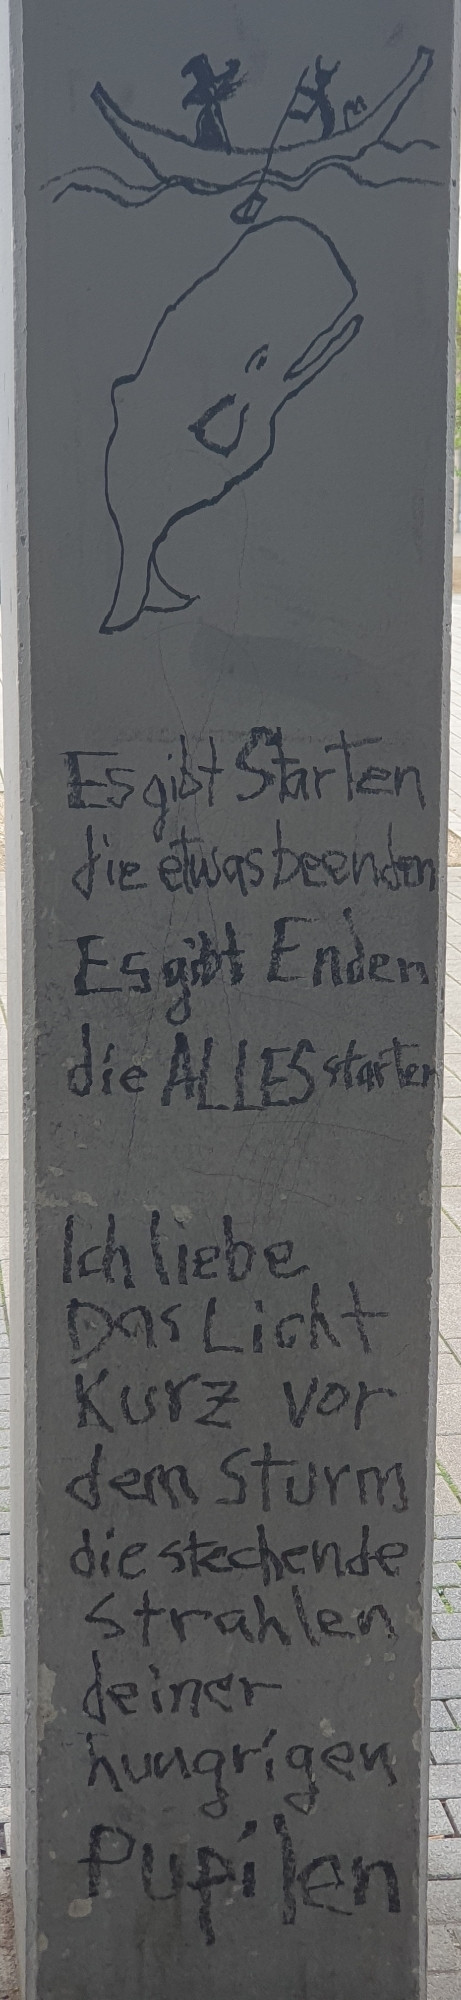 Es gibt Starten
die etwas beenden
Es gibt Enden
die ALLES starten
Ich liebe
Das Licht
Kurz vor
dem Sturm
die stechende
Strahlen
deiner
hungrigen
Pupilen